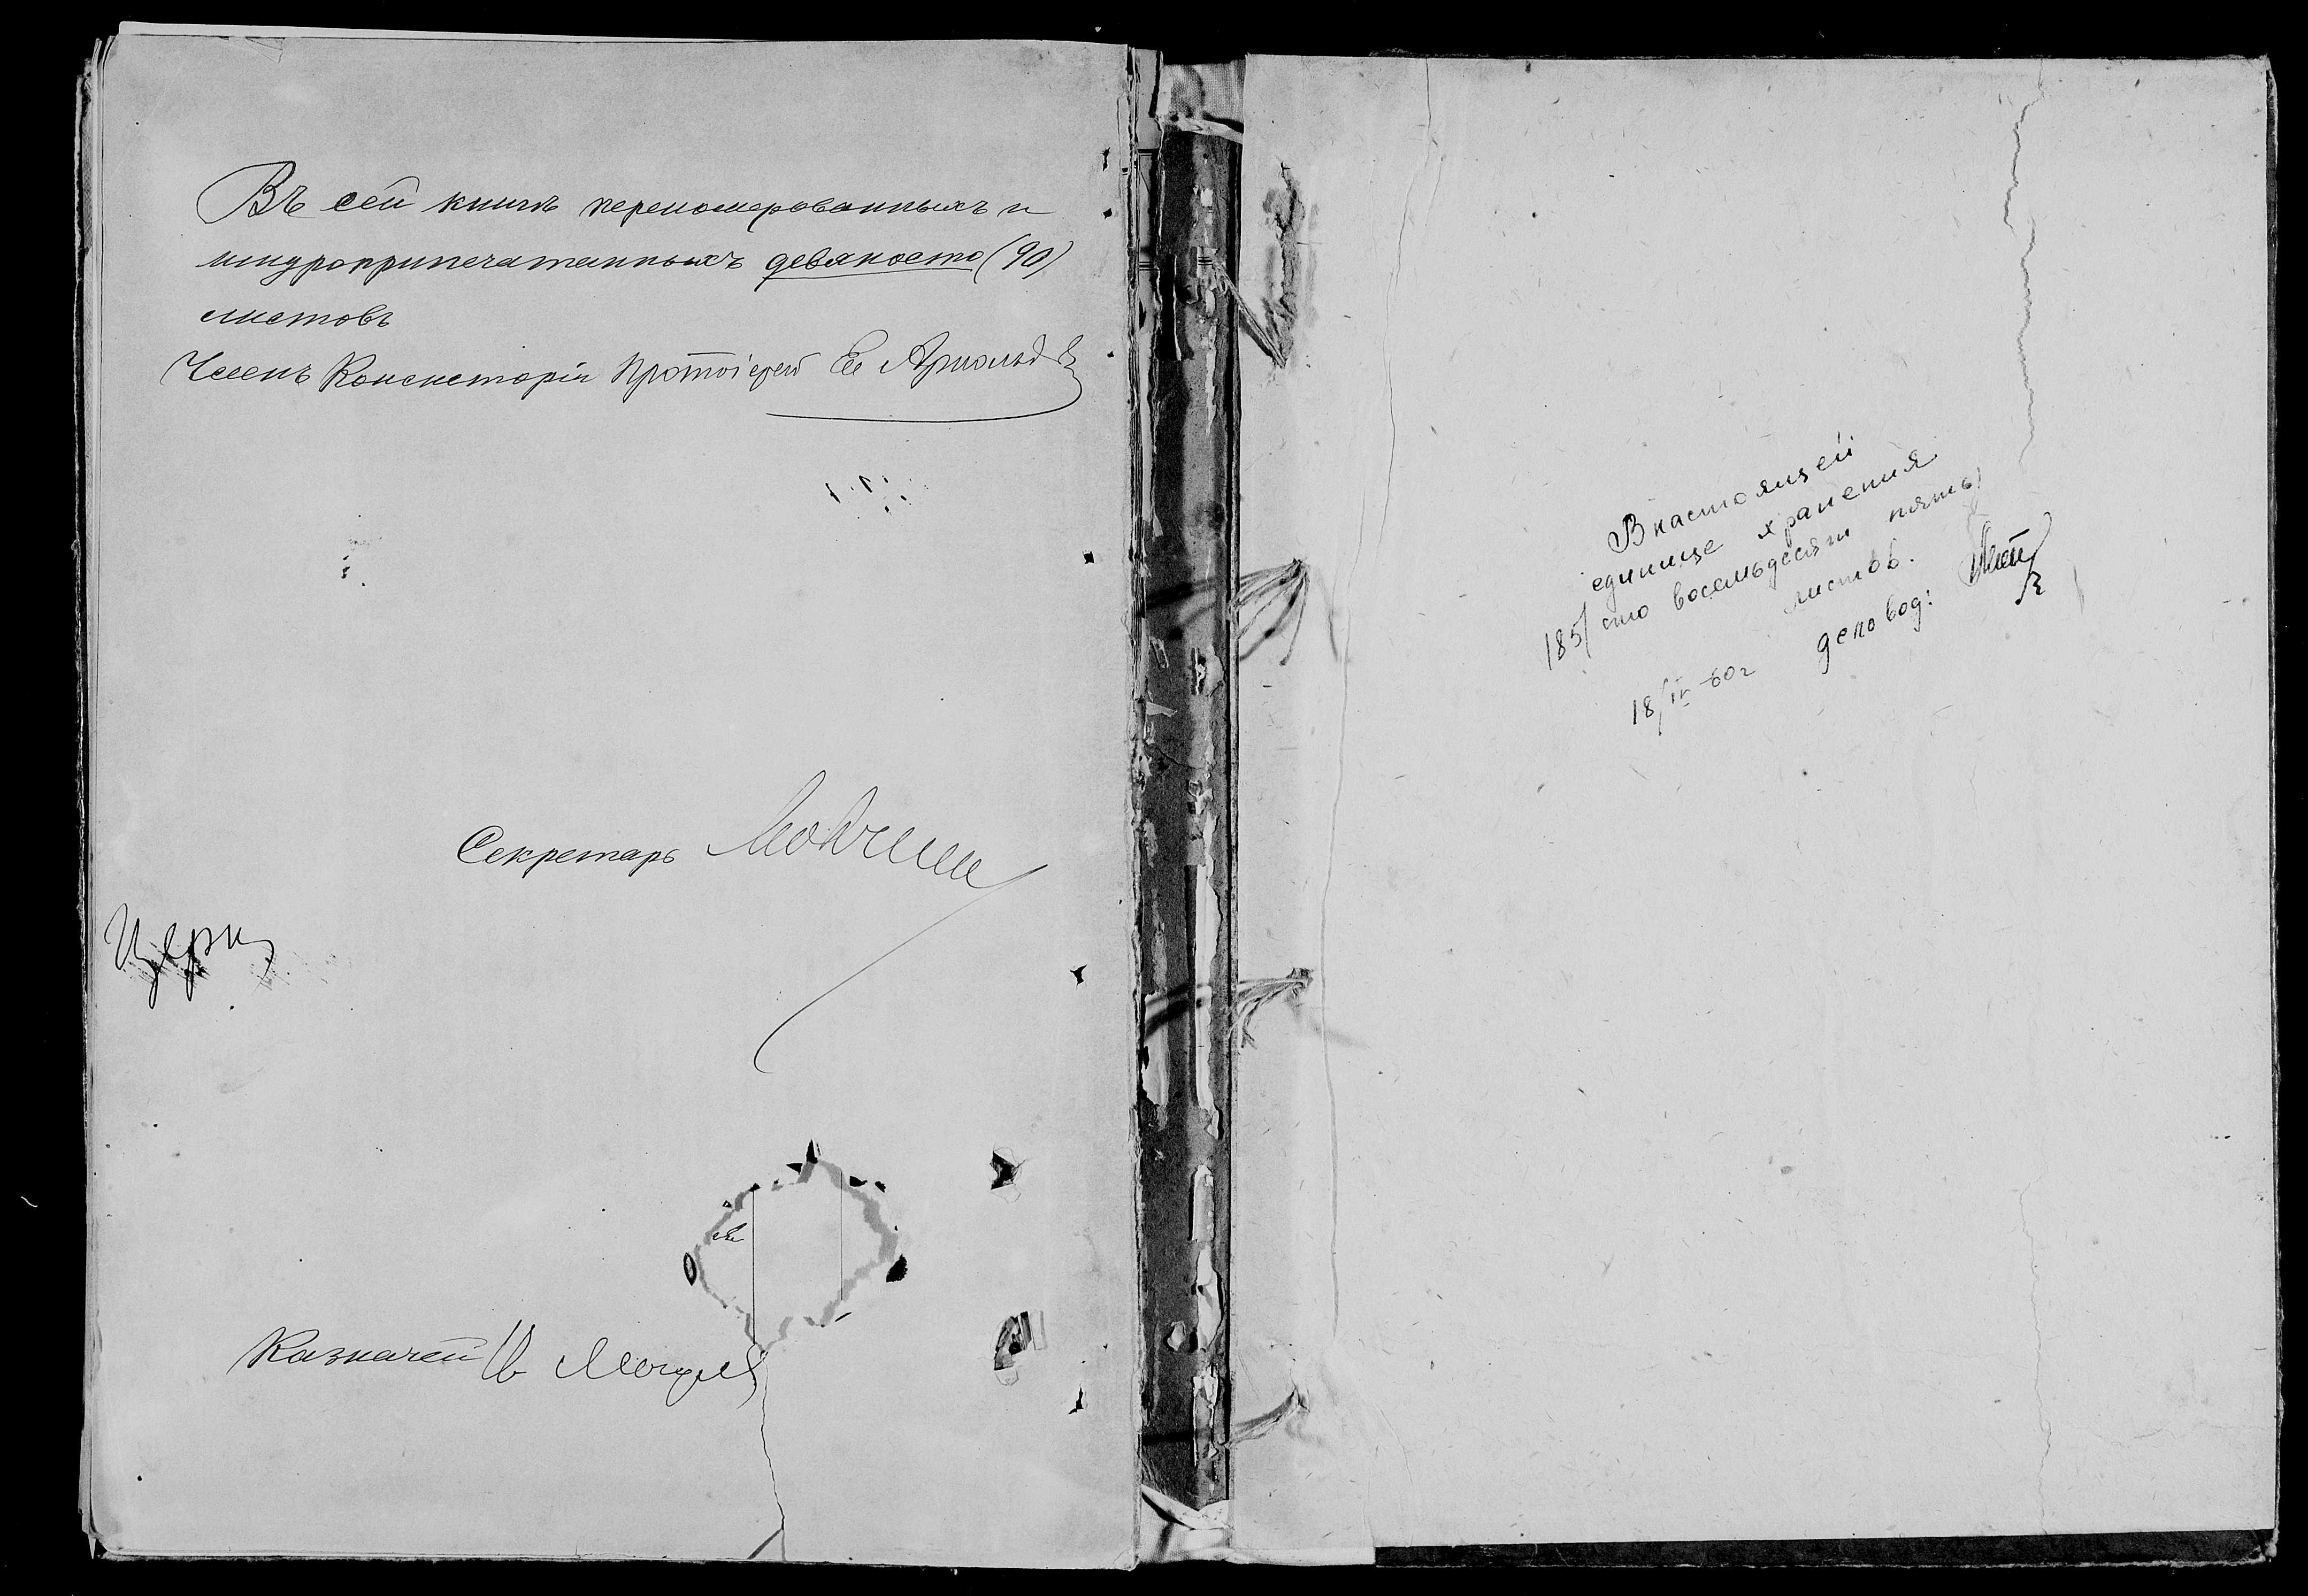 Въ сей книгѣ перенумерованныхъ и
шнуроприпечатанныхъ девяносто (90)
листовъ
Членъ Консисторіи Протоіерей Ев Арнольдовъ
Секретарь
Казначей Ив
В настоящей
единице хранения
185/ сто восемьдесят пять/
листов.
18/IV-60г деловод: